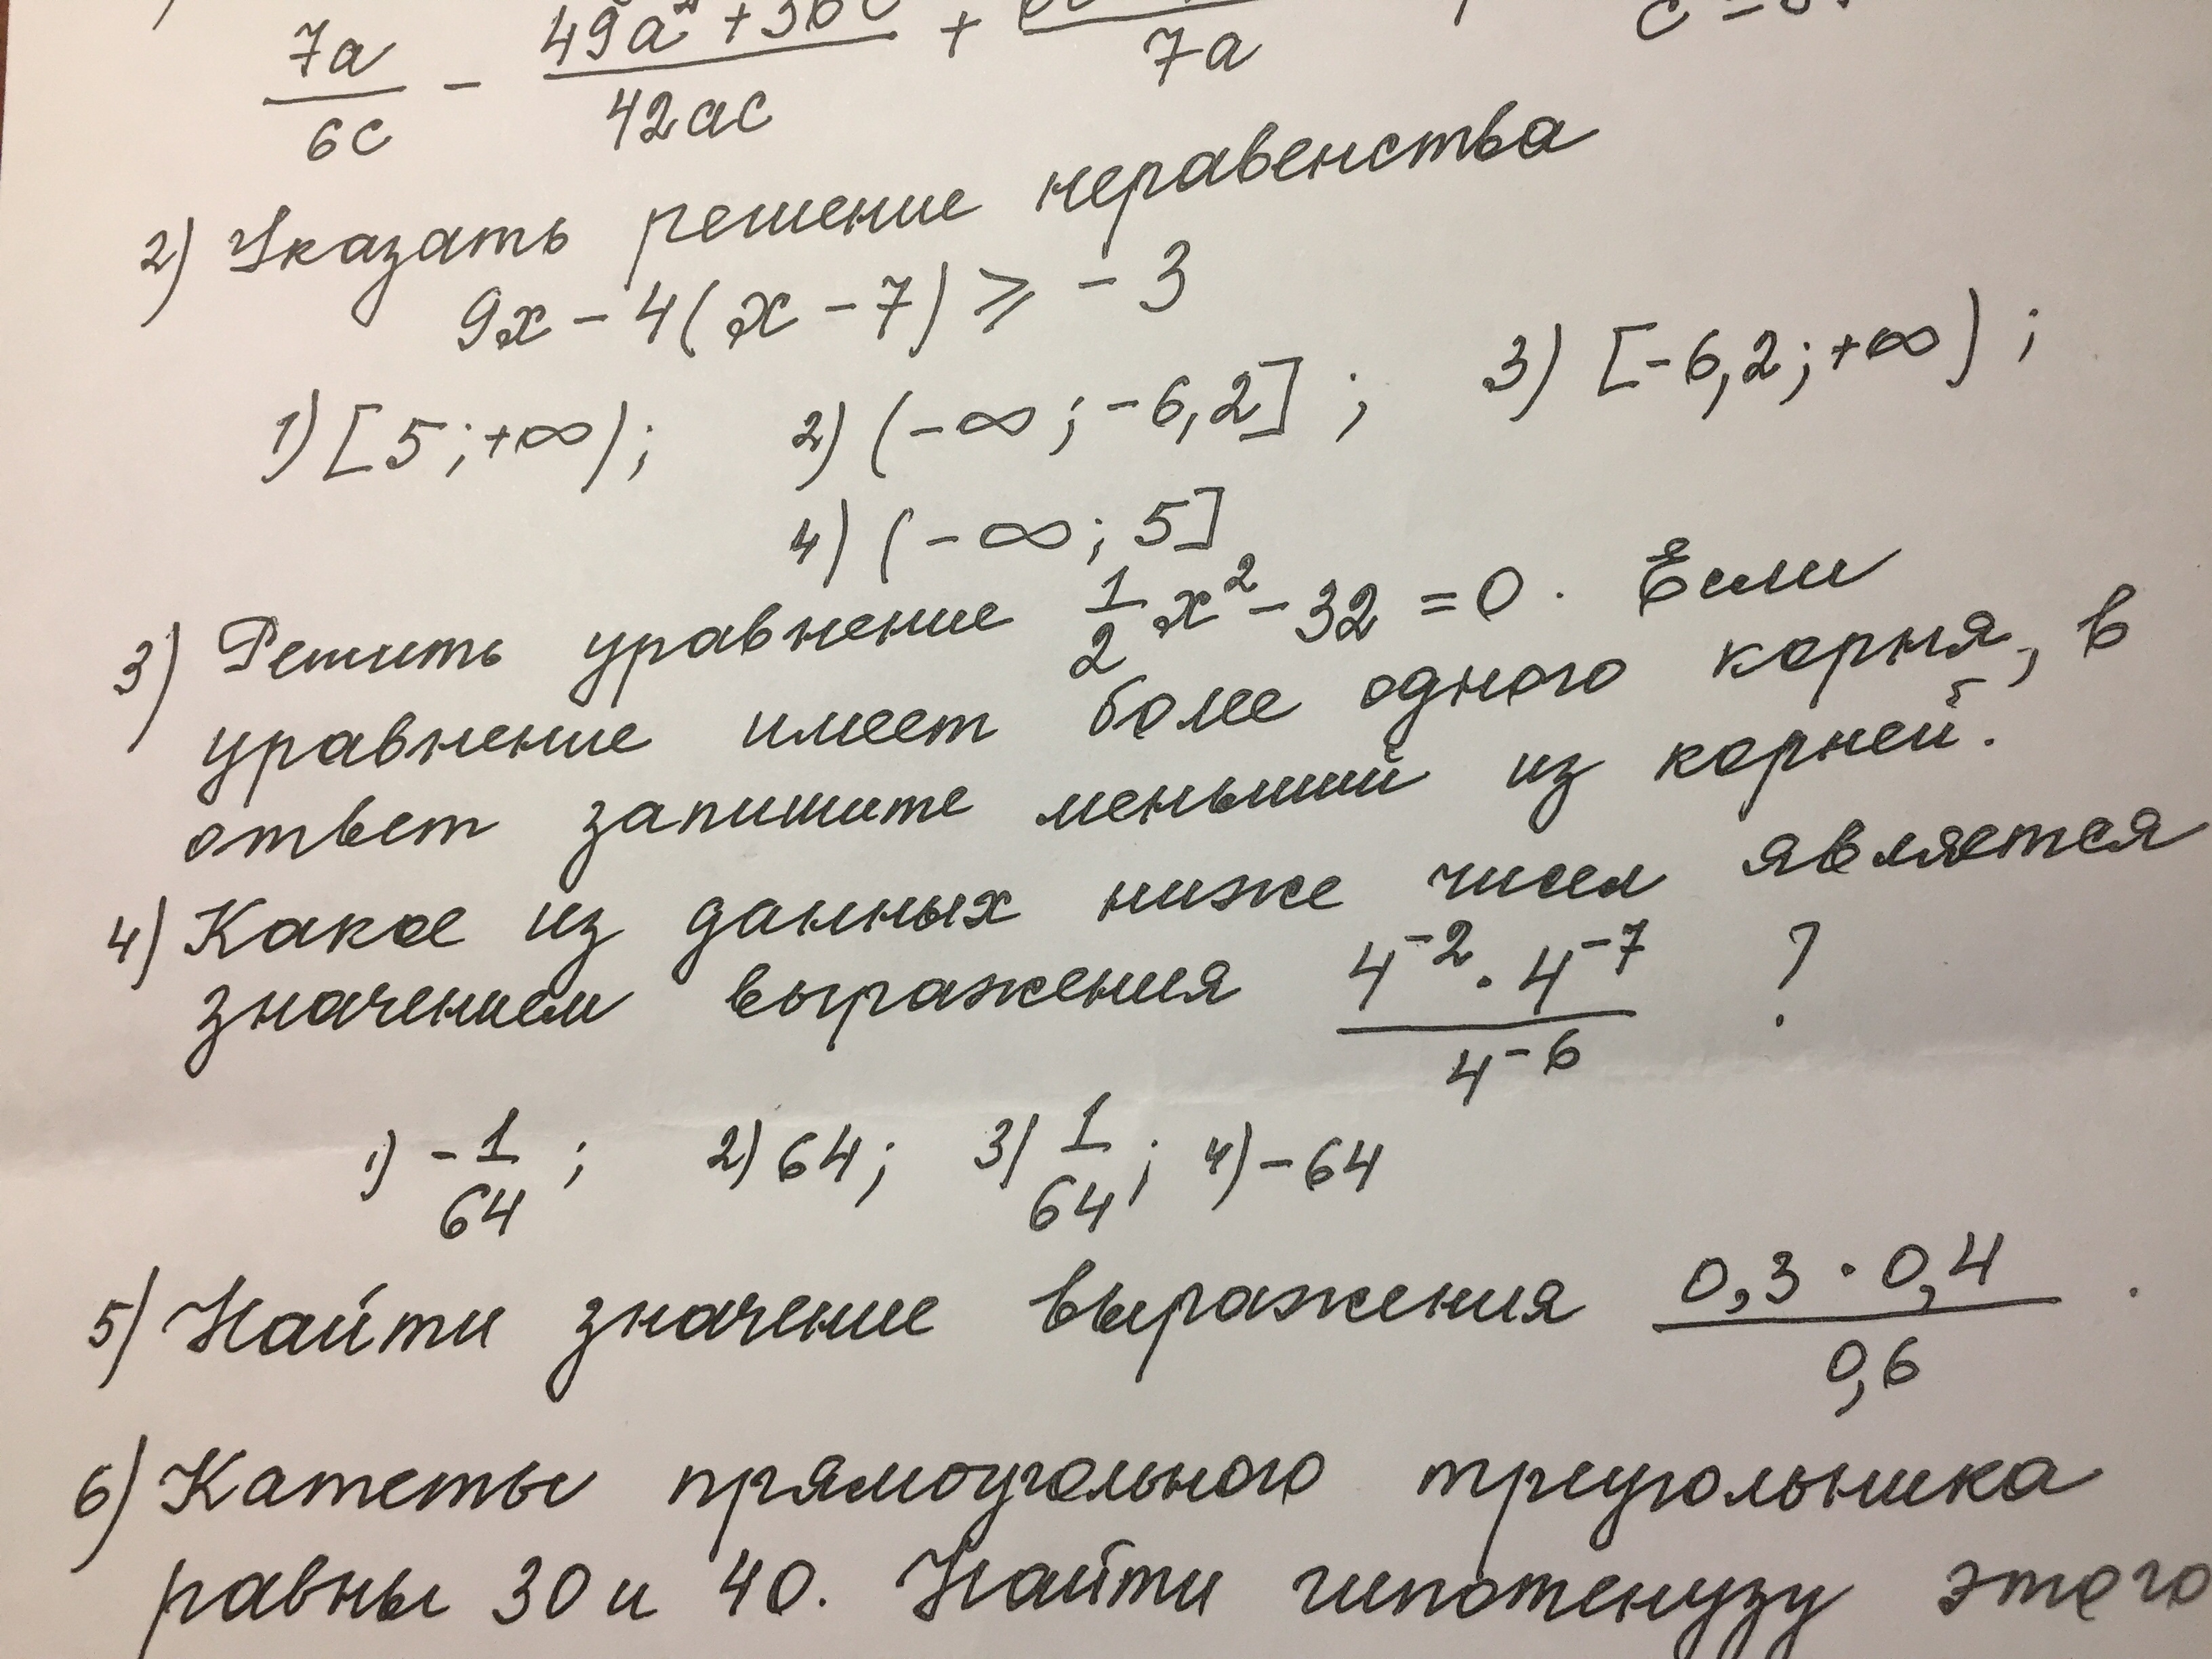 7a/6c - 49a²+36c/42ac + /7a c =
2) Указать решение неравенства
9x - 4(x - 7) ⩾ - 3
1) [5; +∞); 2) (-∞; -6,2]; 3) [-6,2; +∞);
4) (-∞; 5]
3) Решить уравнение 1/2 x² - 32 = 0. Если
уравнение имеет более одного корня, в
ответ запишите меньший из корней.
4) Какое из данных ниже чисел является
значением выражения 4⁻² · 4⁻⁷/4⁻⁶ ?
1) -1/64; 2) 64; 3) 1/64; 4) -64
5) Найти значение выражения 0,3 · 0,4/0,6 .
6) Катеты прямоугольного треугольника
равны 30 и 40. Найти гипотенузу этого